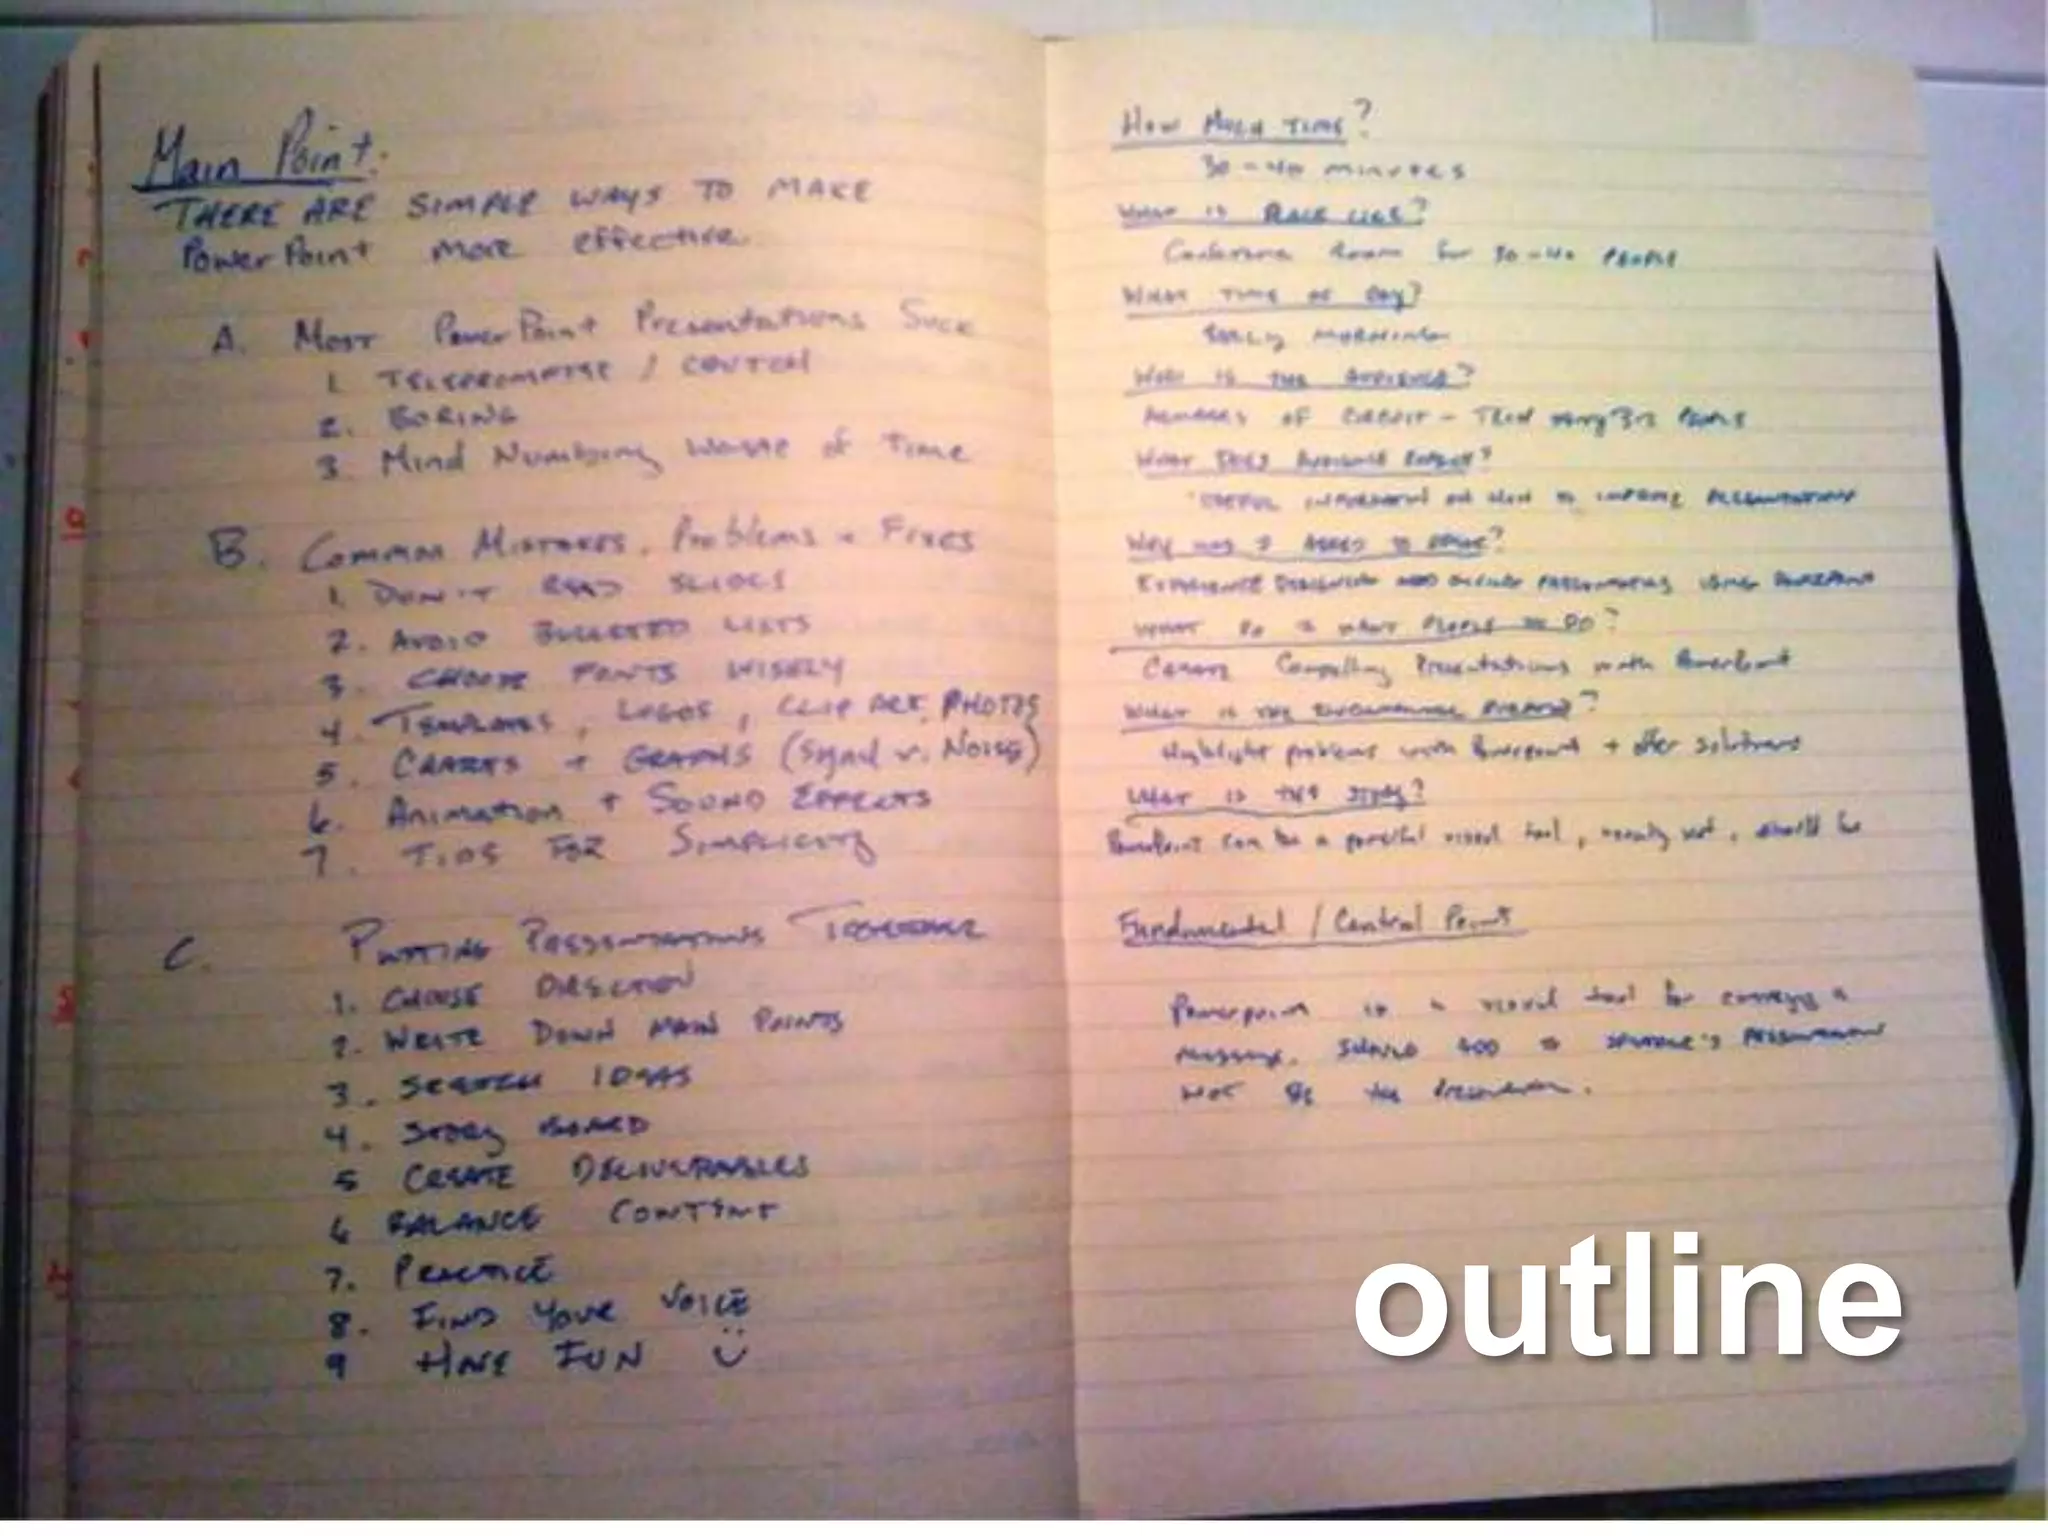 Main Point:
THERE ARE SIMPLE WAYS TO MAKE
PowerPoint more effective
A. Most PowerPoint Presentations Suck
1. TELEPROMPTER / CRUTCH
2. BORING
3. Mind Numbing Waste of Time
B. Common Mistakes, Problems + Fixes
1. DON'T READ SLIDES
2. AVOID BULLETED LISTS
3. CHOOSE FONTS WISELY
4. TEMPLATES, LOGOS, CLIP ART, PHOTOS
5. CHARTS + GRAPHS (Signal v. Noise)
6. Animation + SOUND EFFECTS
7. TIPS FOR SIMPLICITY
C. PUTTING PRESENTATIONS TOGETHER
1. CHOOSE DIRECTION
2. WRITE DOWN MAIN POINTS
3. SKETCH IDEAS
4. STORY BOARD
5 CREATE DELIVERABLES
6 BALANCE CONTENT
7. PRACTICE
8. FIND YOUR VOICE
9 HAVE FUN
How MUCH TIME?
30-40 minutes
WHAT IS PLACE LIKE?
Conference Room for 30-40 PEOPLE
WHAT TIME OF DAY?
EARLY MORNING
WHO IS THE AUDIENCE?
MEMBERS OF
WHAT DOES AUDIENCE EXPECT?
USEFUL INFORMATION ON HOW TO IMPROVE PRESENTATIONS
WHY WAS I ASKED TO SPEAK?
EXPERIENCE DESIGNING AND GIVING PRESENTATIONS USING POWERPOINT
WHAT DO I WANT PEOPLE TO DO?
CREATE Compelling Presentations with PowerPoint
WHAT IS THE FUNDAMENTAL PURPOSE?
Highlight problems with Powerpoint + offer solutions
WHAT IS THE STORY?
PowerPoint can be a powerful visual tool, usually not, should be
Fundamental / Central Point
Powerpoint is a visual tool for conveying a
message. SHOULD ADD TO SPEAKER'S PRESENTATION
NOT BE the Presentation.
outline